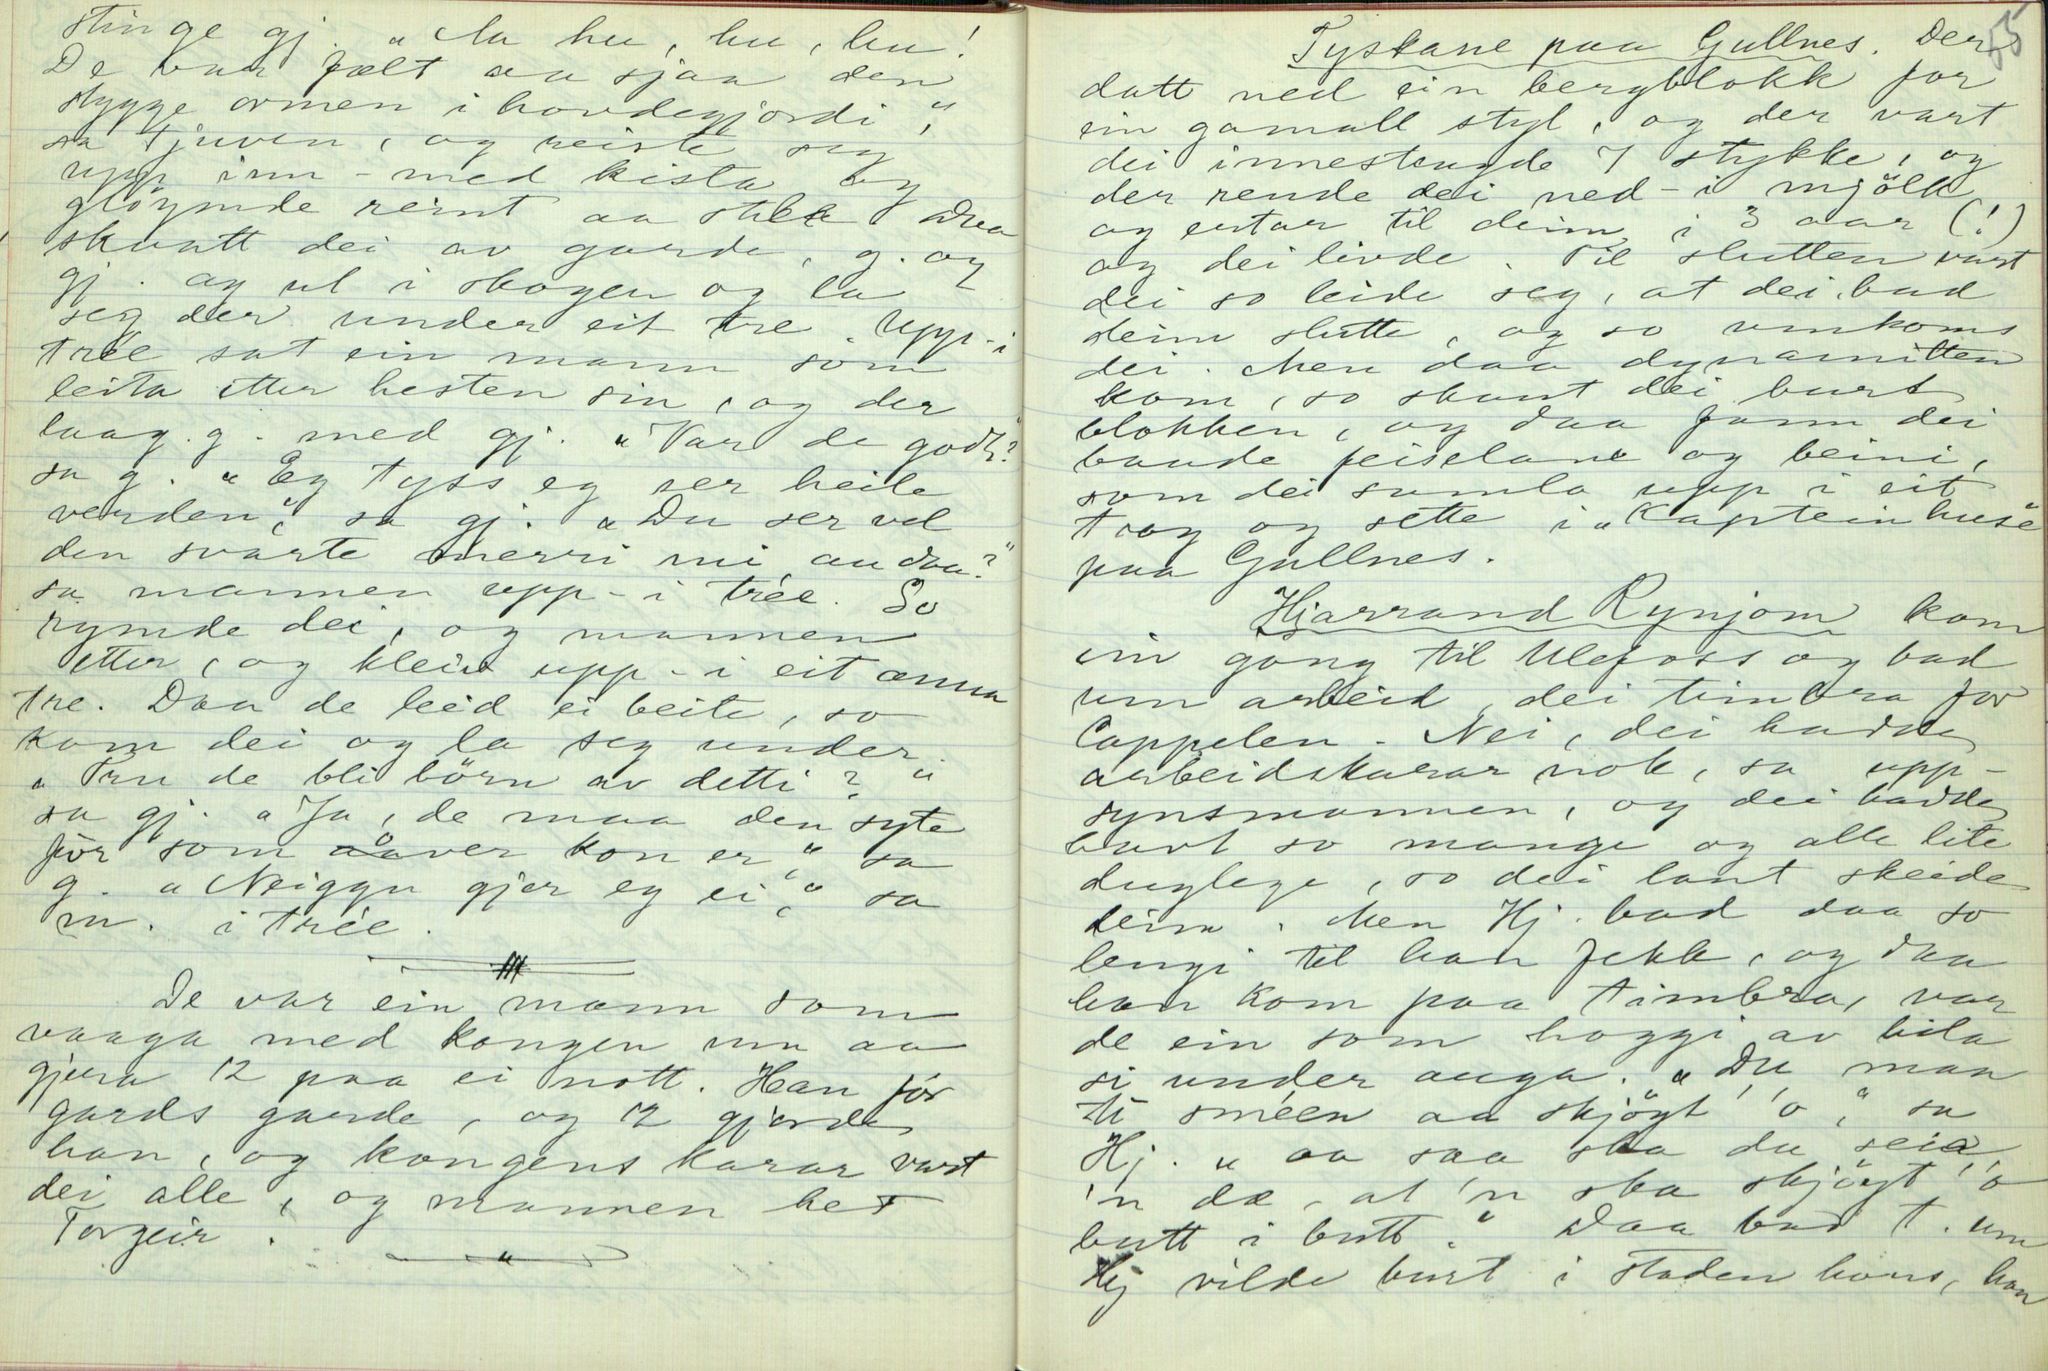 stinge gj. "Aa hu, hu, hu!
De var fælt aa sjaa den
stygge ormen i hovdegjordi,"
sa tjuven, og reiste seg
upp inn-med kista og
glöymde reint aa stela. Daa
skvatt dei av garde, g. og
gj. og ut i skogen og la
seg der under eit tre. Upp-i
trée sat ein mann som
leita etter hesten sin, og der
laag g. med gj. "Var de godt?"
sa g. "Eg tyss eg ser heile
verden," sa gj. "Du ser vel
den svarte merri mi au daa?"
sa mannen upp-i trée. So
rymde dei, og mannen
etter, og kleiv upp-i eit anna
tre. Daa de leid ei beite, so
kom dei og la seg under.
"Tru de bli börn av detti?"
sa gj. "Ja, de maa den syte
for som aaver kon er," sa
g. "Neiggu gjer eg ei," sa
m. i trée.
De var ein mann som
vaaga med kongen um aa
gjera 12 paa ei nott. Han fór
gards garde, og 12 gjorde
han, og kongens karar vart
dei alle, og mannen het
Torgeir.
55
Tyskane paa Gullnes. Der
datt ned ein bergblokk for
ein gamall styl, og der vart
dei innestengde 7 stykke, og
der rende dei ned-i mjölk
og ertar til deim i 3 aar (!)
og dei livde. Til slutten vart
dei so leide seg, at dei bad
deim slutte, og so umkoms
dei. Men daa dynamitten
kom, so skaut dei burt
blokken, og daa fann dei
baade feislane og beini,
som dei samla upp i eit
trog og sette i "Kapteinhuse"
paa Gullnes.
Hjarrand Rynjom kom
ein gong til Ulefoss og bad
um arbeid, dei timbra for
Cappelen. Nei, dei hadde
arbeidskarar nok, sa upp-
synsmannen, og dei hadde
havt so mange og alle lite
duglege, so dei laut skeide
deim. Men Hj. bad daa so
lengi til han fekk, og daa
han kom paa timbra, var
de ein som hoggi av bila
si under auga. "Du maa
ti sméen aa skjöyt 'o," sa
Hj. "aa saa ska du seia
'n dæ, at 'n ska skjöyt 'o
butt i butt." Daa bad t. um
Hj vilde burt i staden hans, han